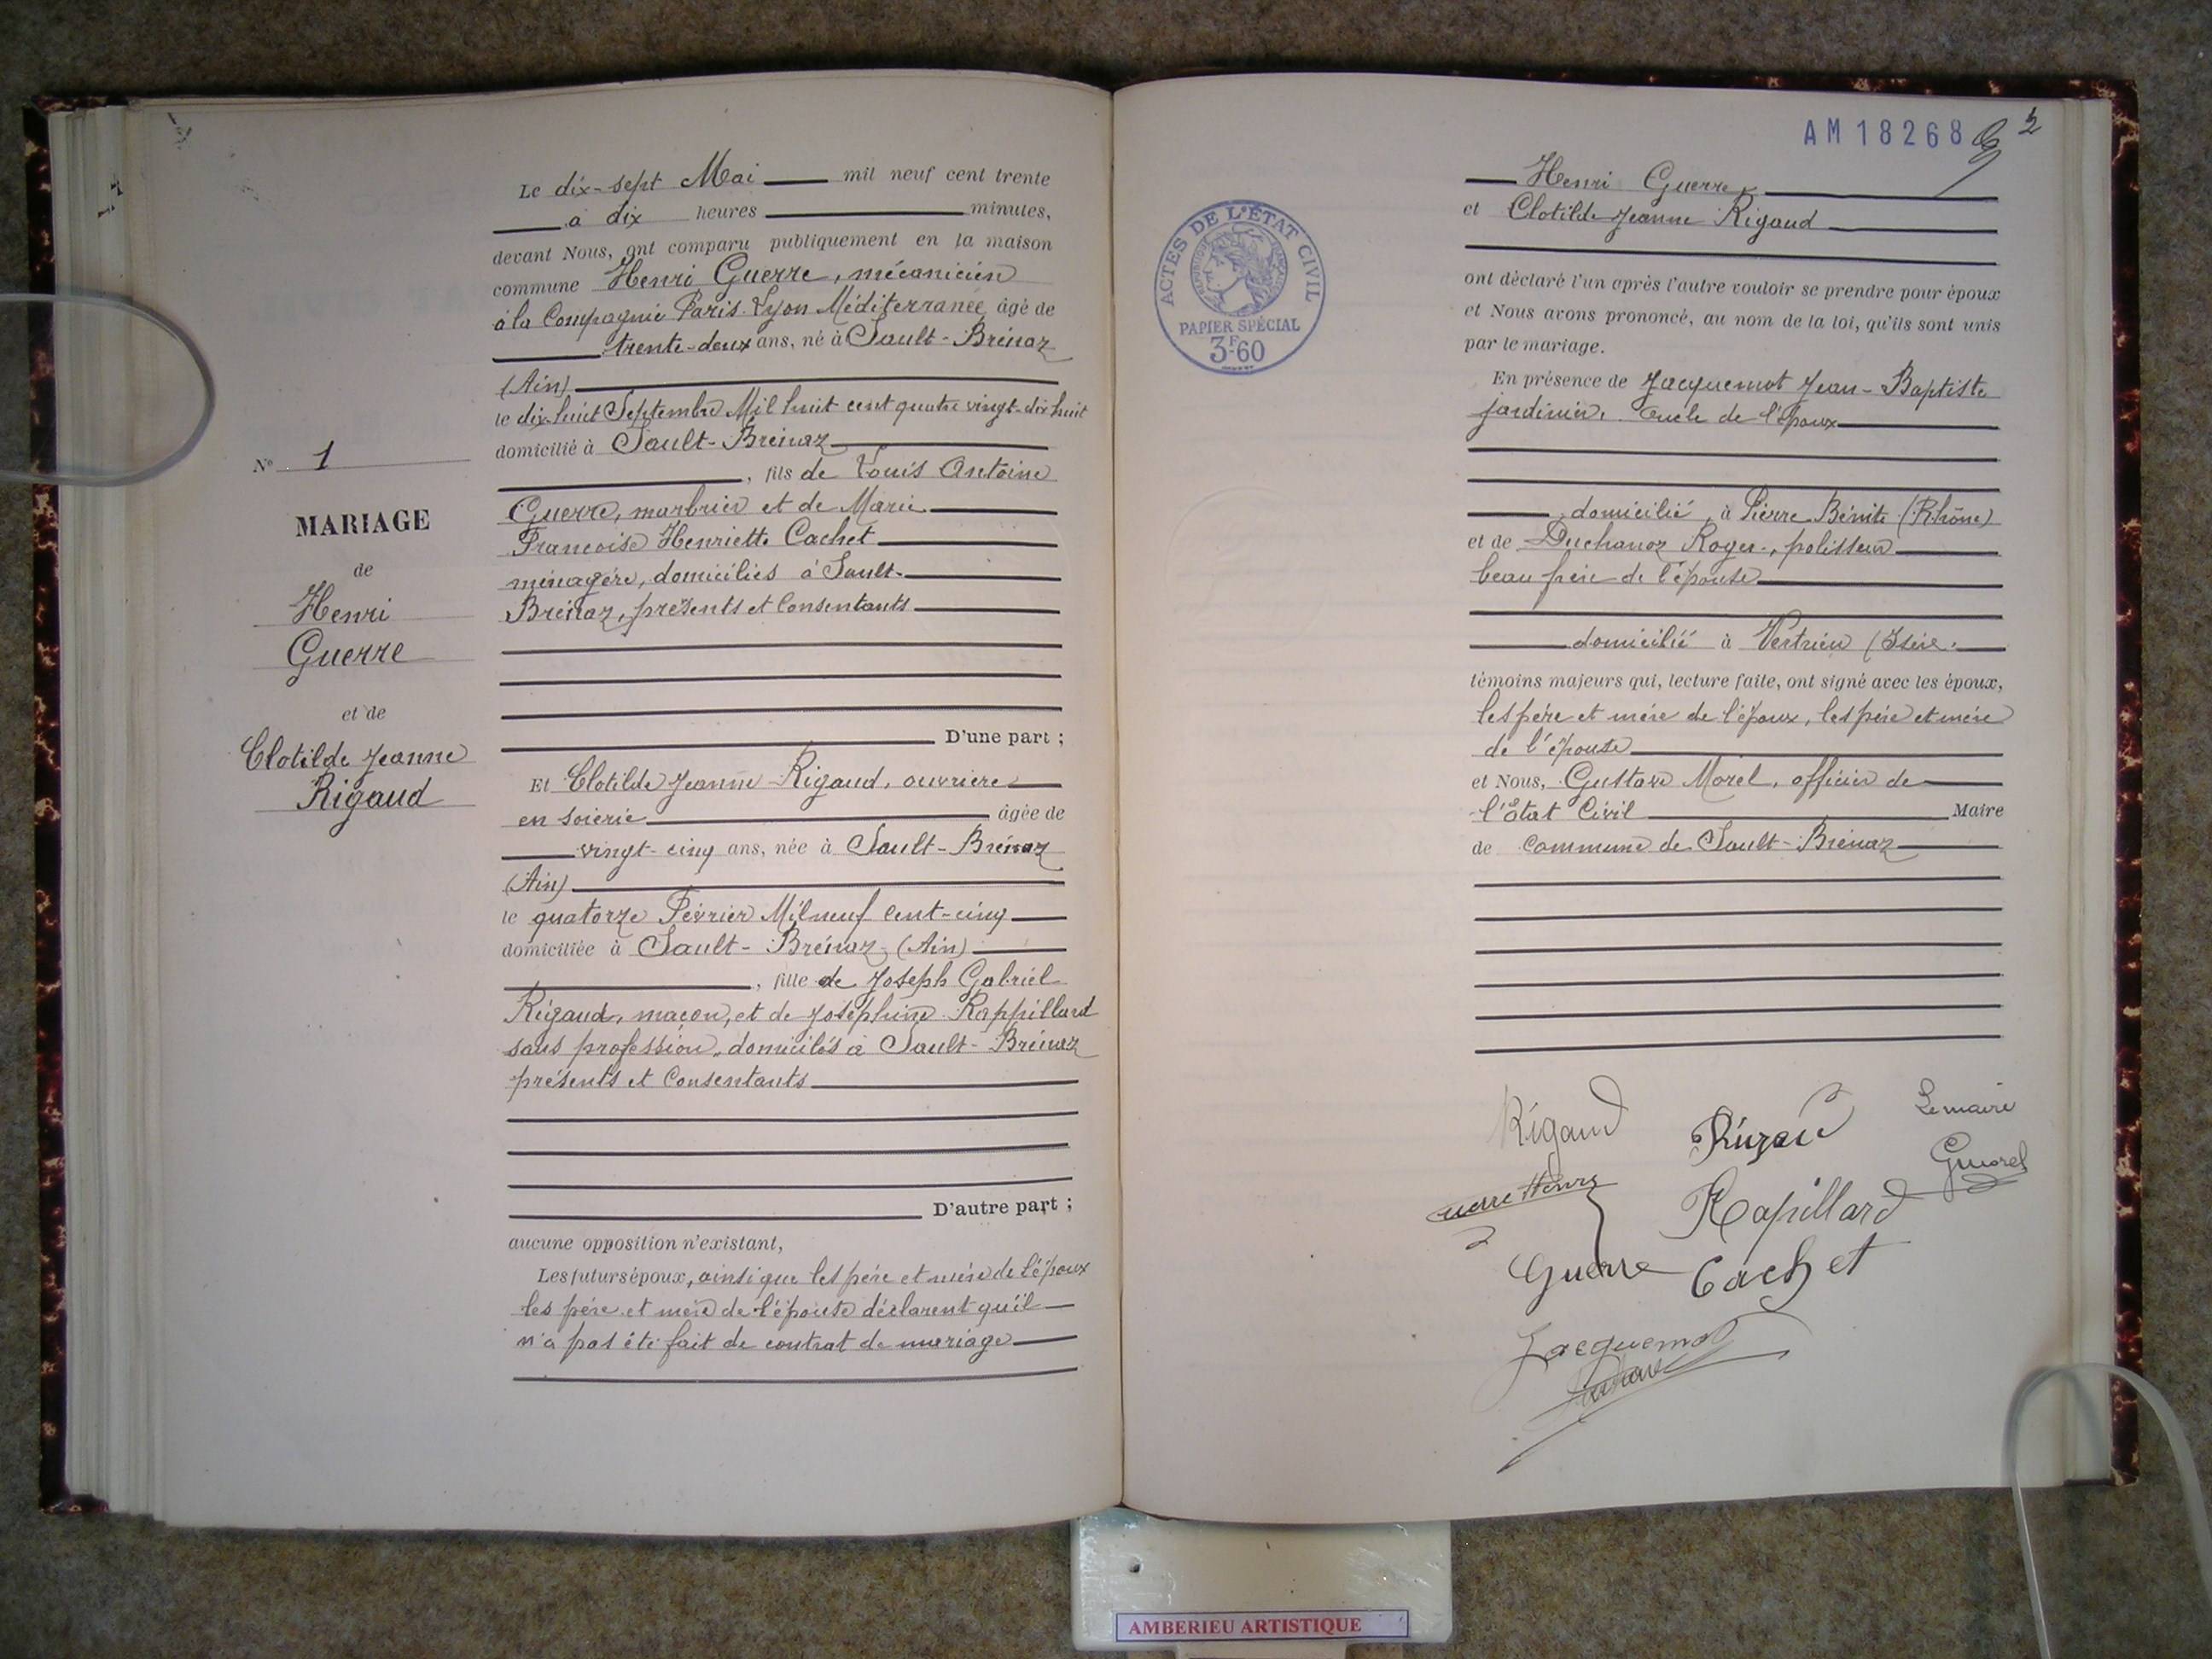 N° 1
MARIAGE
de
Henri
Guerre
et de
Clotilde Jeanne
Rigaud
Le dix-sept Mai mil neuf cent trente
à dix heures minutes,
devant Nous, ont comparu publiquement en la maison
commune Henri Guerre, mécanicien
à la Compagnie Paris. Lyon Méditerranée âgé de
trente-deux ans, né à Sault-Brénaz
(Ain)
le dix huit Septembre Mil huit cent quatre vingt-dix huit
domicilié à Sault-Brénaz
, fils de Louis Antoine
Guerre, marbrier et de Marie
Francoise Henriette Cachet
ménagère, domiciliés à Sault-
Brénaz, présents et Consentants
D'une part ;
Et Clotilde Jeanne Rigaud, ouvrière
en soierie âgée de
vingt-cinq ans, née à Sault-Brénaz
(Ain)
le quatorze Février Mil neuf cent-cinq
domiciliée à Sault-Brénaz (Ain)
, fille de Joseph Gabriel
Rigaud, macon, et de Joséphine Rappillard
sans profession, domiciliés à Sault-Brénaz
présents et Consentants
D'autre part ;
aucune opposition n'existant,
Les futurs époux, ainsi que les père et mère de l'époux
les père et mère de l'épouse déclarent qu'il
n'a pas été fait de contrat de mariage
AM 18268
2
ACTES DE L'ÉTAT CIVIL
PAPIER SPÉCIAL
3F.60
Henri Guerre
et Clotilde Jeanne Rigaud
ont déclaré l'un après l'autre vouloir se prendre pour époux
et Nous avons prononcé, au nom de la loi, qu'ils sont unis
par le mariage.
En présence de Jacquemot Jean-Baptiste
jardinier, oncle de l'époux
domicilié à Pierre Bénite (Rhône)
et de Duchanoz Roger, polisseur
beau frère de l'épouse
domicilié à Vertrieu (Isère.
témoins majeurs qui, lecture faite, ont signé avec les époux,
les père et mère de l'époux, les père et mère
de l'épouse
et Nous, Gustave Morel, officier de
l'État Civil Maire
de Commune de Sault-Brénaz
Rigaud
Le maire
Gmorel
Guerre Henri
Rapillard
Guerre
Cachet
Jacquemot
AMBERIEU ARTISTIQUE